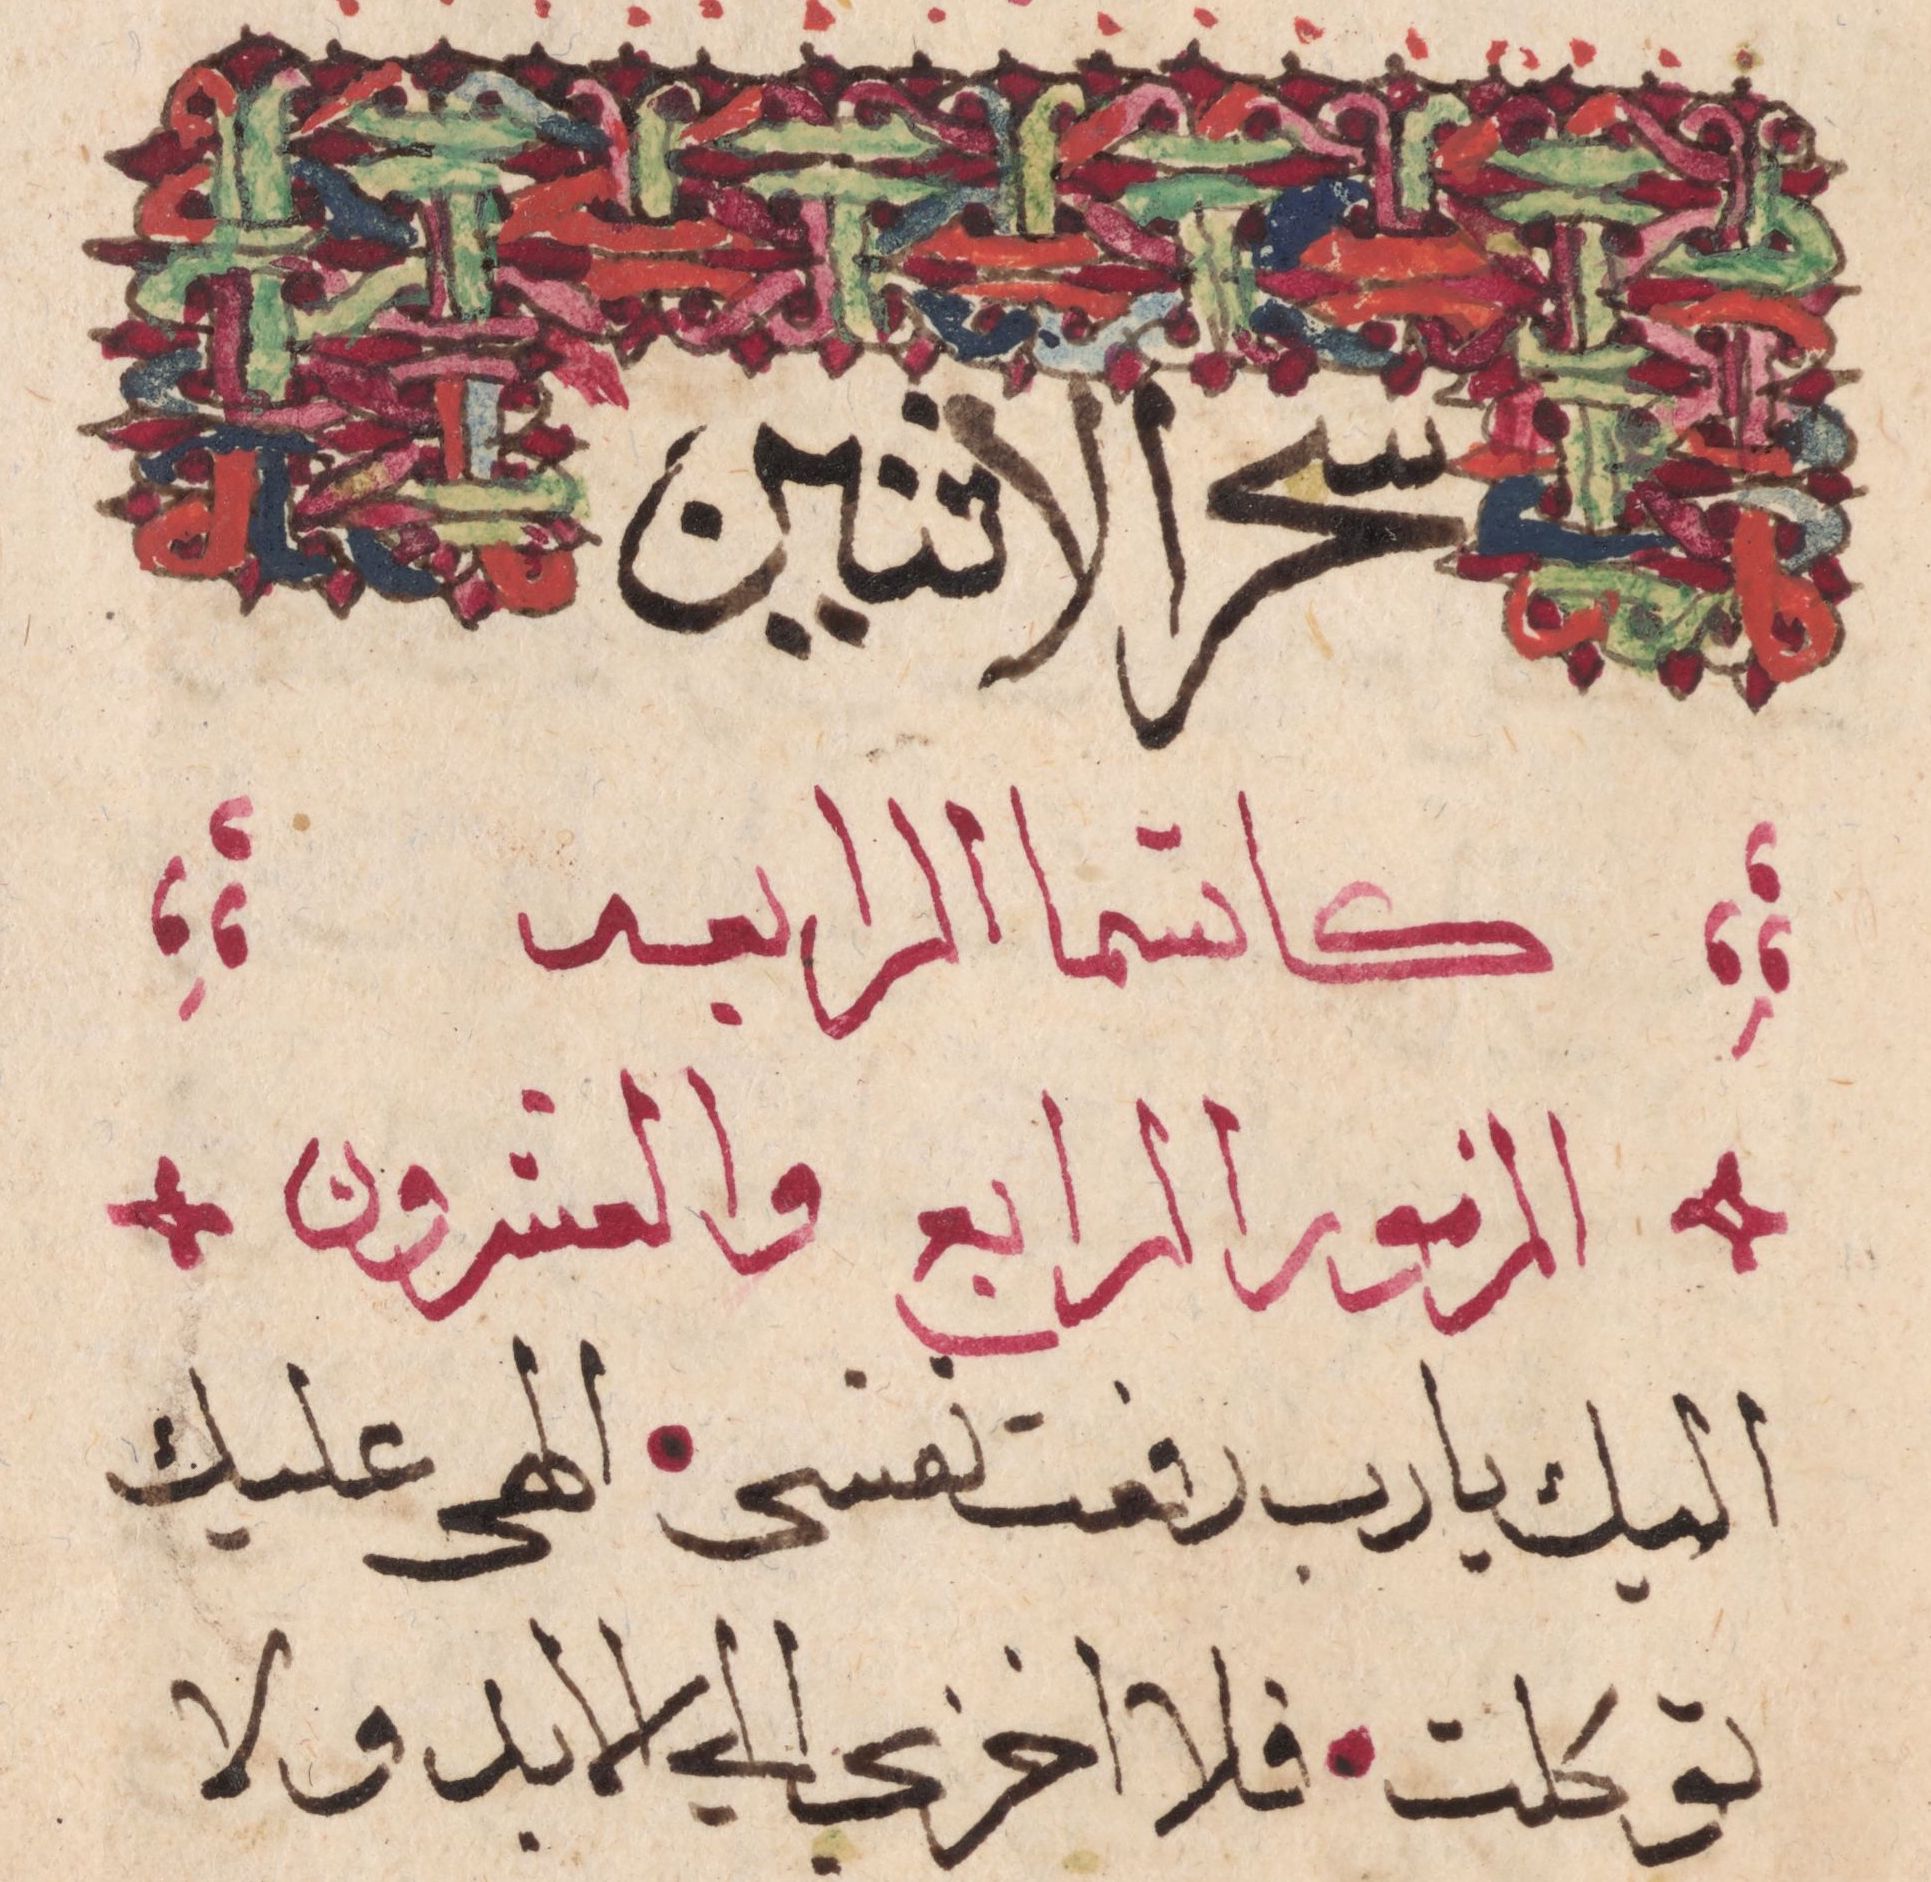 سحر الاثنين
كاتسما الرابعه
المزمور الرابع والعشرون
اليك يارب رفعت نفسى. الهى عليك
توكلت. فلا اخزى الي الابد ولا